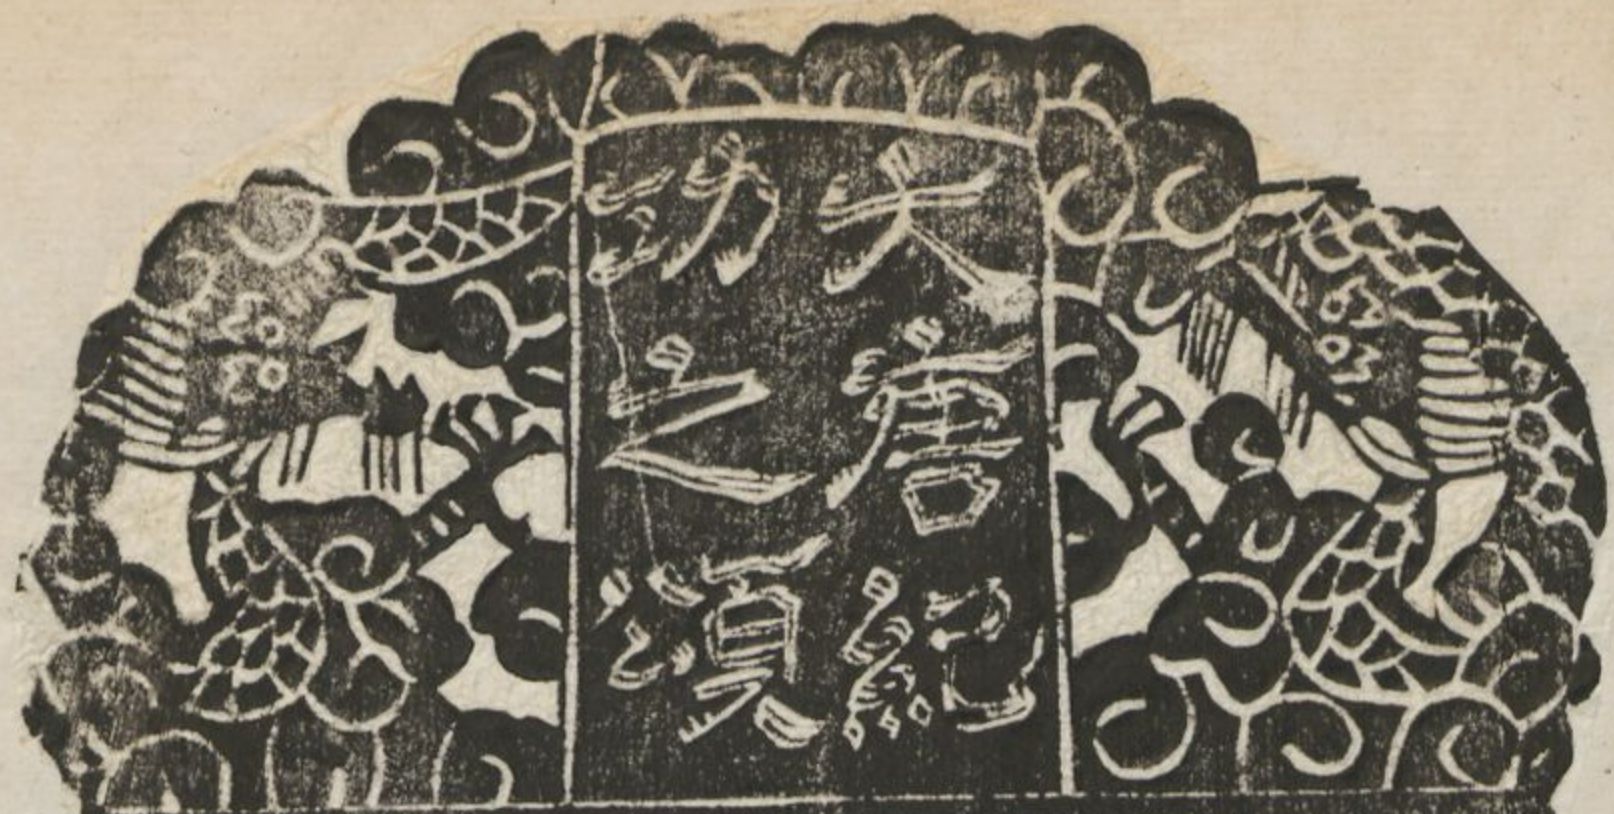 大唐紀
功之頌